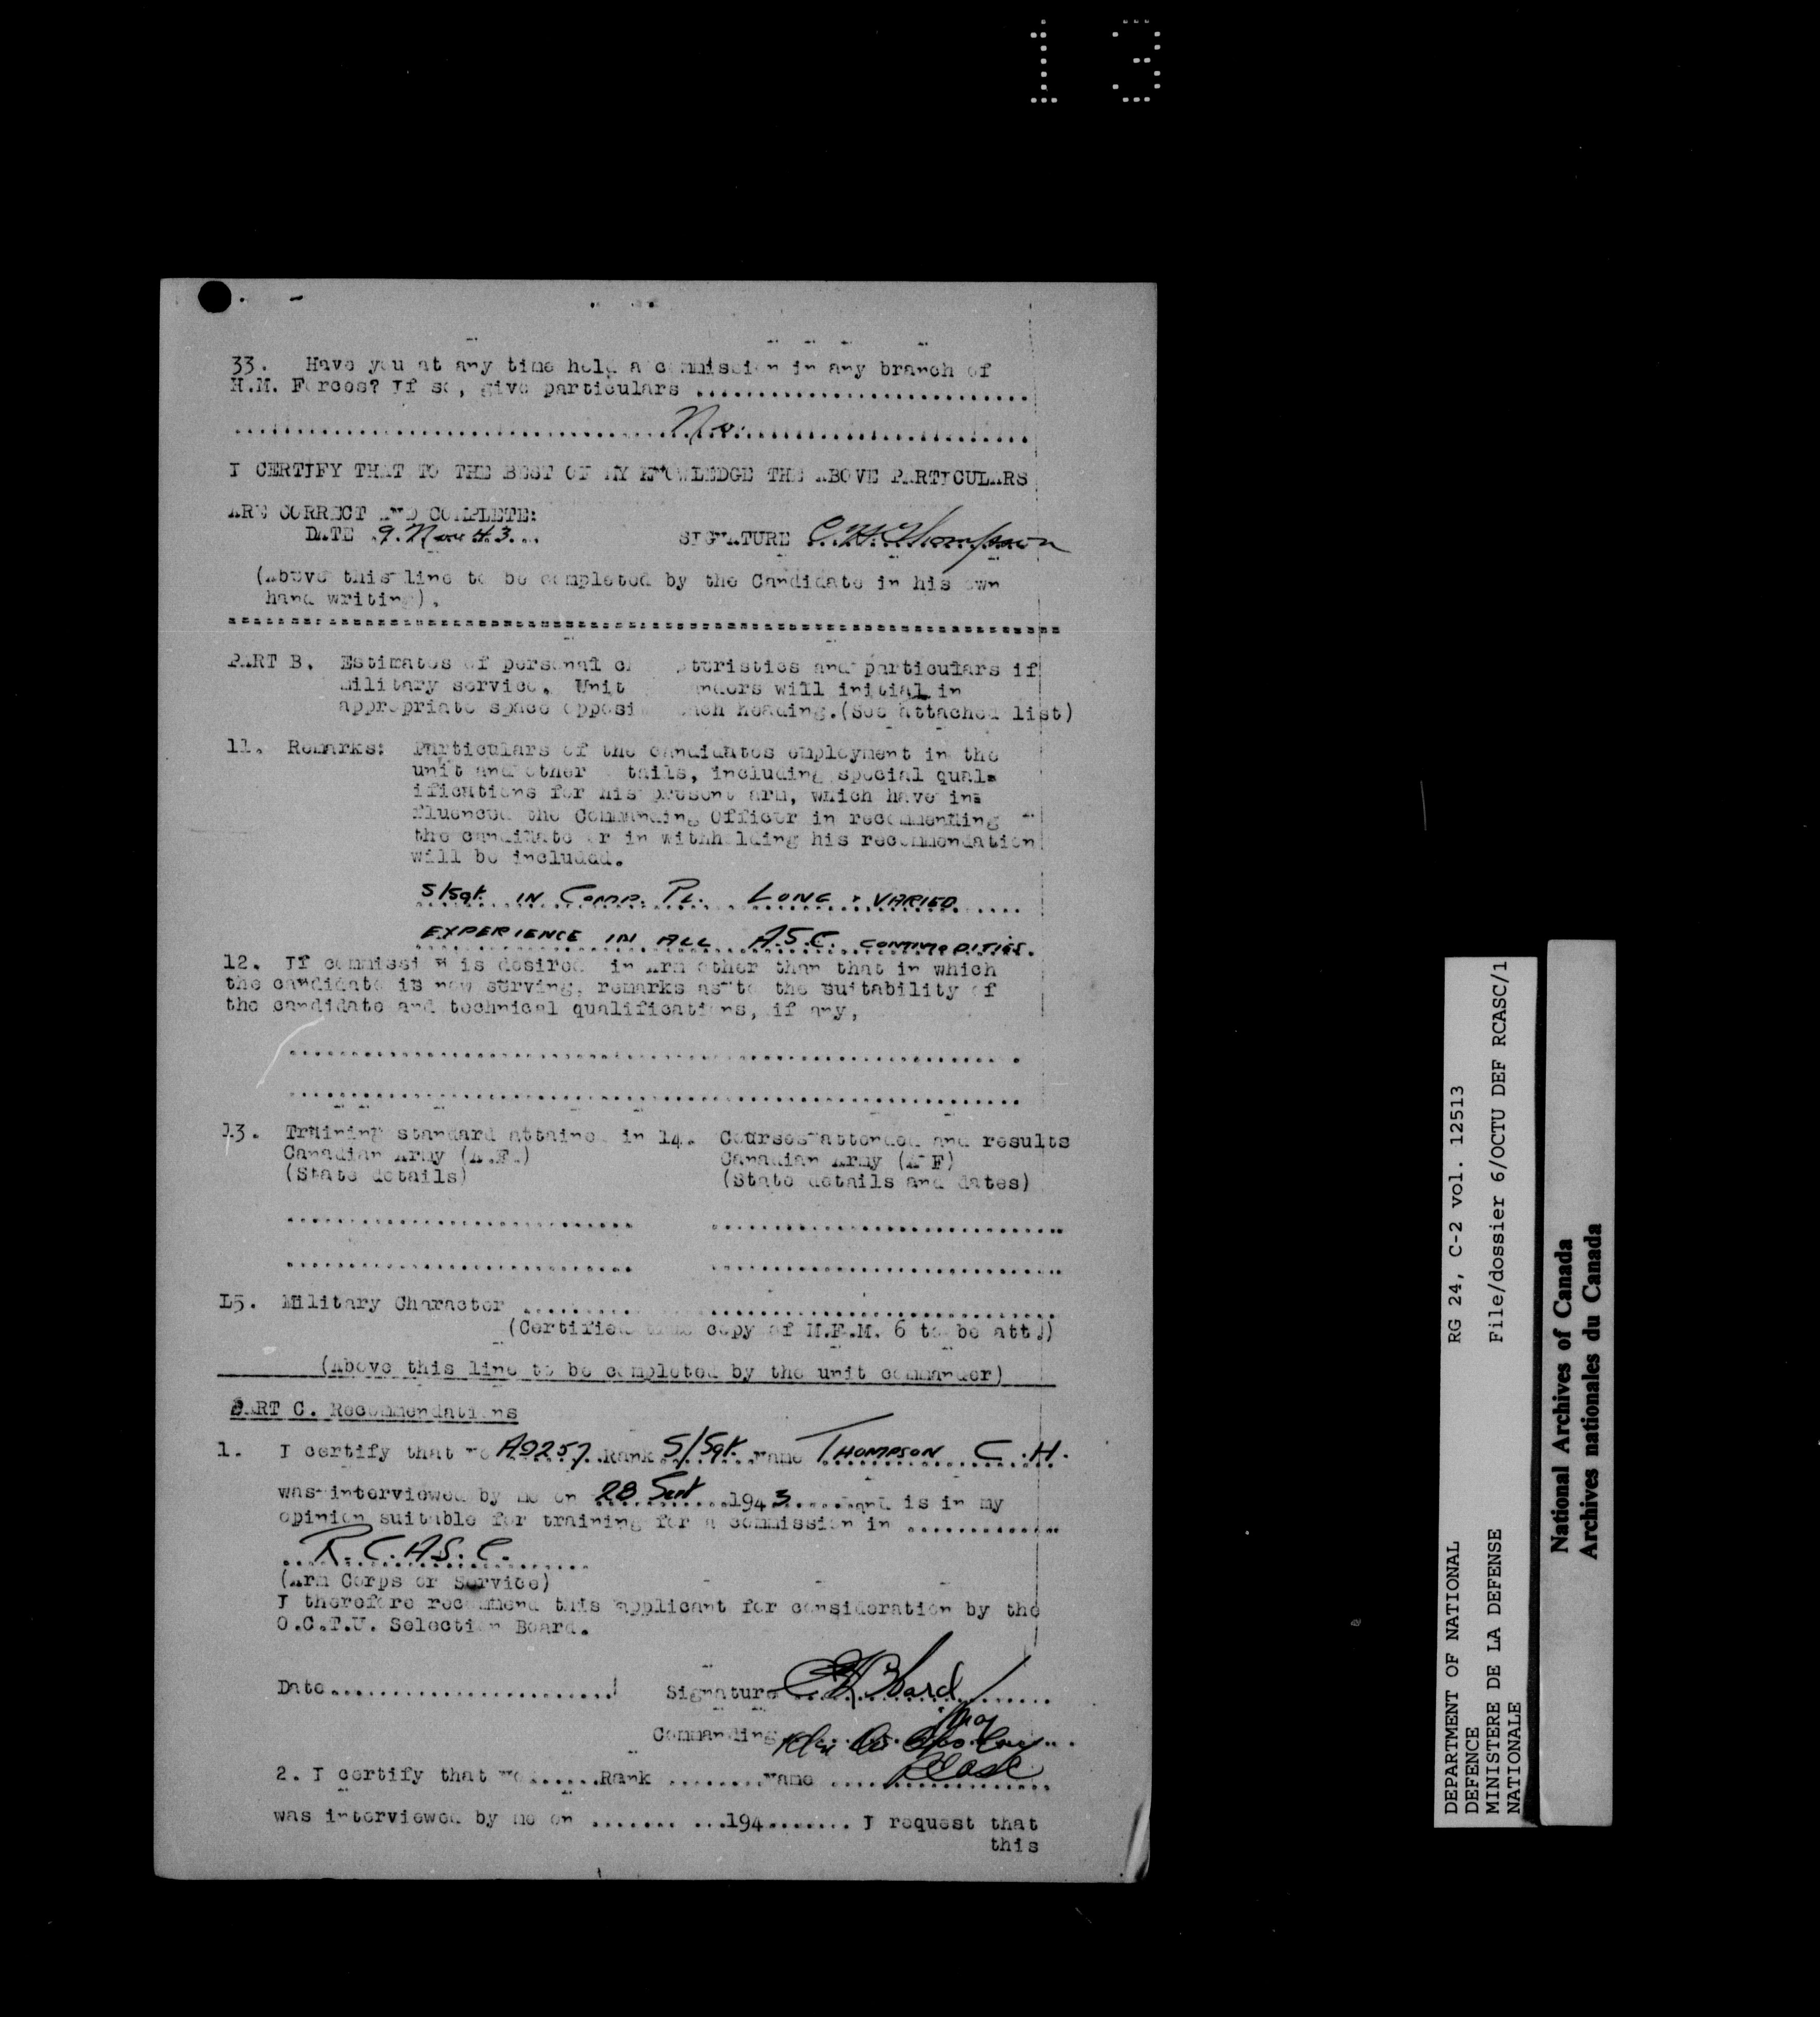 13
33. Have you at any time held a commission in any branch of
H.M. Forces? If so, give particulars ...........................
No.
I CERTIFY THAT TO THE BEST OF MY KNOWLEDGE THE ABOVE PARTICULARS
ARE CORRECT AND COMPLETE:
DATE 9. Nov 43... SIGNATURE C.H. Thompson
(Above this line to be completed by the Candidate in his own
hand writing).
PART B. Estimates of personal characteristics and particulars if
military service. Unit commanders will initial in
appropriate space opposite each heading.(See attached list)
11. Remarks: Particulars of the candidates employment in the
unit and other details, including special qual=
ifications for his present arm, which have in=
fluenced the Commanding Officer in recommending
the candidate or in withholding his recommendation
will be included.
S/Sgt. IN COMP. PL. LONG & VARIED
EXPERIENCE IN ALL A.S.C. COMMODITIES.
12. If commission is desired in Arm other than that in which
the candidate is now serving, remarks as to the suitability of
the candidate and technical qualifications, if any,
13. Training standard attained in 14. Courses attended and results
Canadian Army (A.F.) Canadian Army (A F)
(State details) (State details and dates)
15. Military Character ..........
(Certified true copy of M.F.M. 6 to be att.)
(Above this line to be completed by the unit commander)
PART C. Recommendations
1. I certify that No A9257 Rank S/Sgt. Name THOMPSON C.H.
was interviewed by me on 28 Sept 1943 and is in my
opinion suitable for training for a commission in ..............
R.C.A.S.C.
(Arm Corps or Service)
I therefore recommend this applicant for consideration by the
O.C.T.U. Selection Board.
Date....................... Signature
Commanding
RCASC
2. I certify that No......Rank ........Name ..................
was interviewed by me on ....... ...194........ I request that
this
RG 24, C-2 vol. 12513
File/dossier 6/OCTU DEF RCASC/1
DEPARTMENT OF NATIONAL
DEFENCE
MINISTERE DE LA DEFENSE
NATIONALE
National Archives of Canada
Archives nationales du Canada